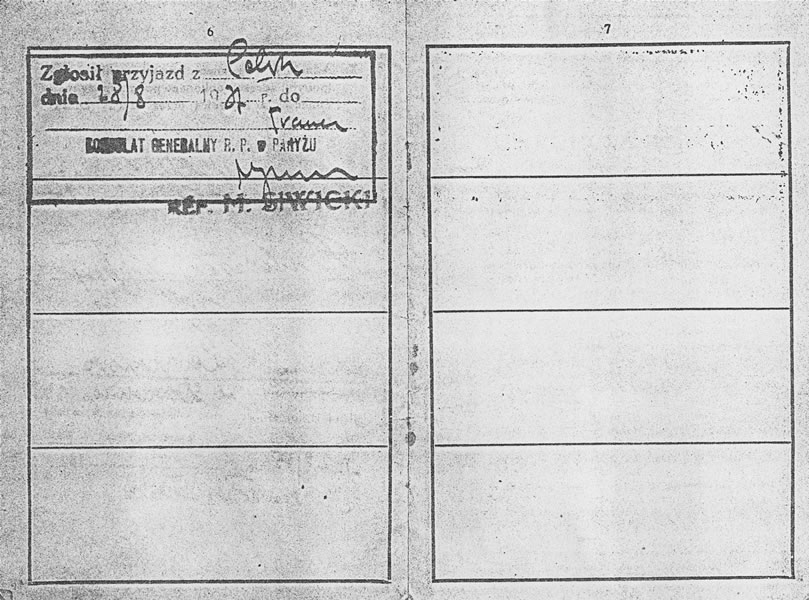 6
Zgłosił przyjazd z Polski
dnia 28/8 1937 r. do
KONSULAT GENERALNY R. P. w PARYŻU
REF. M. SIWICKI
7